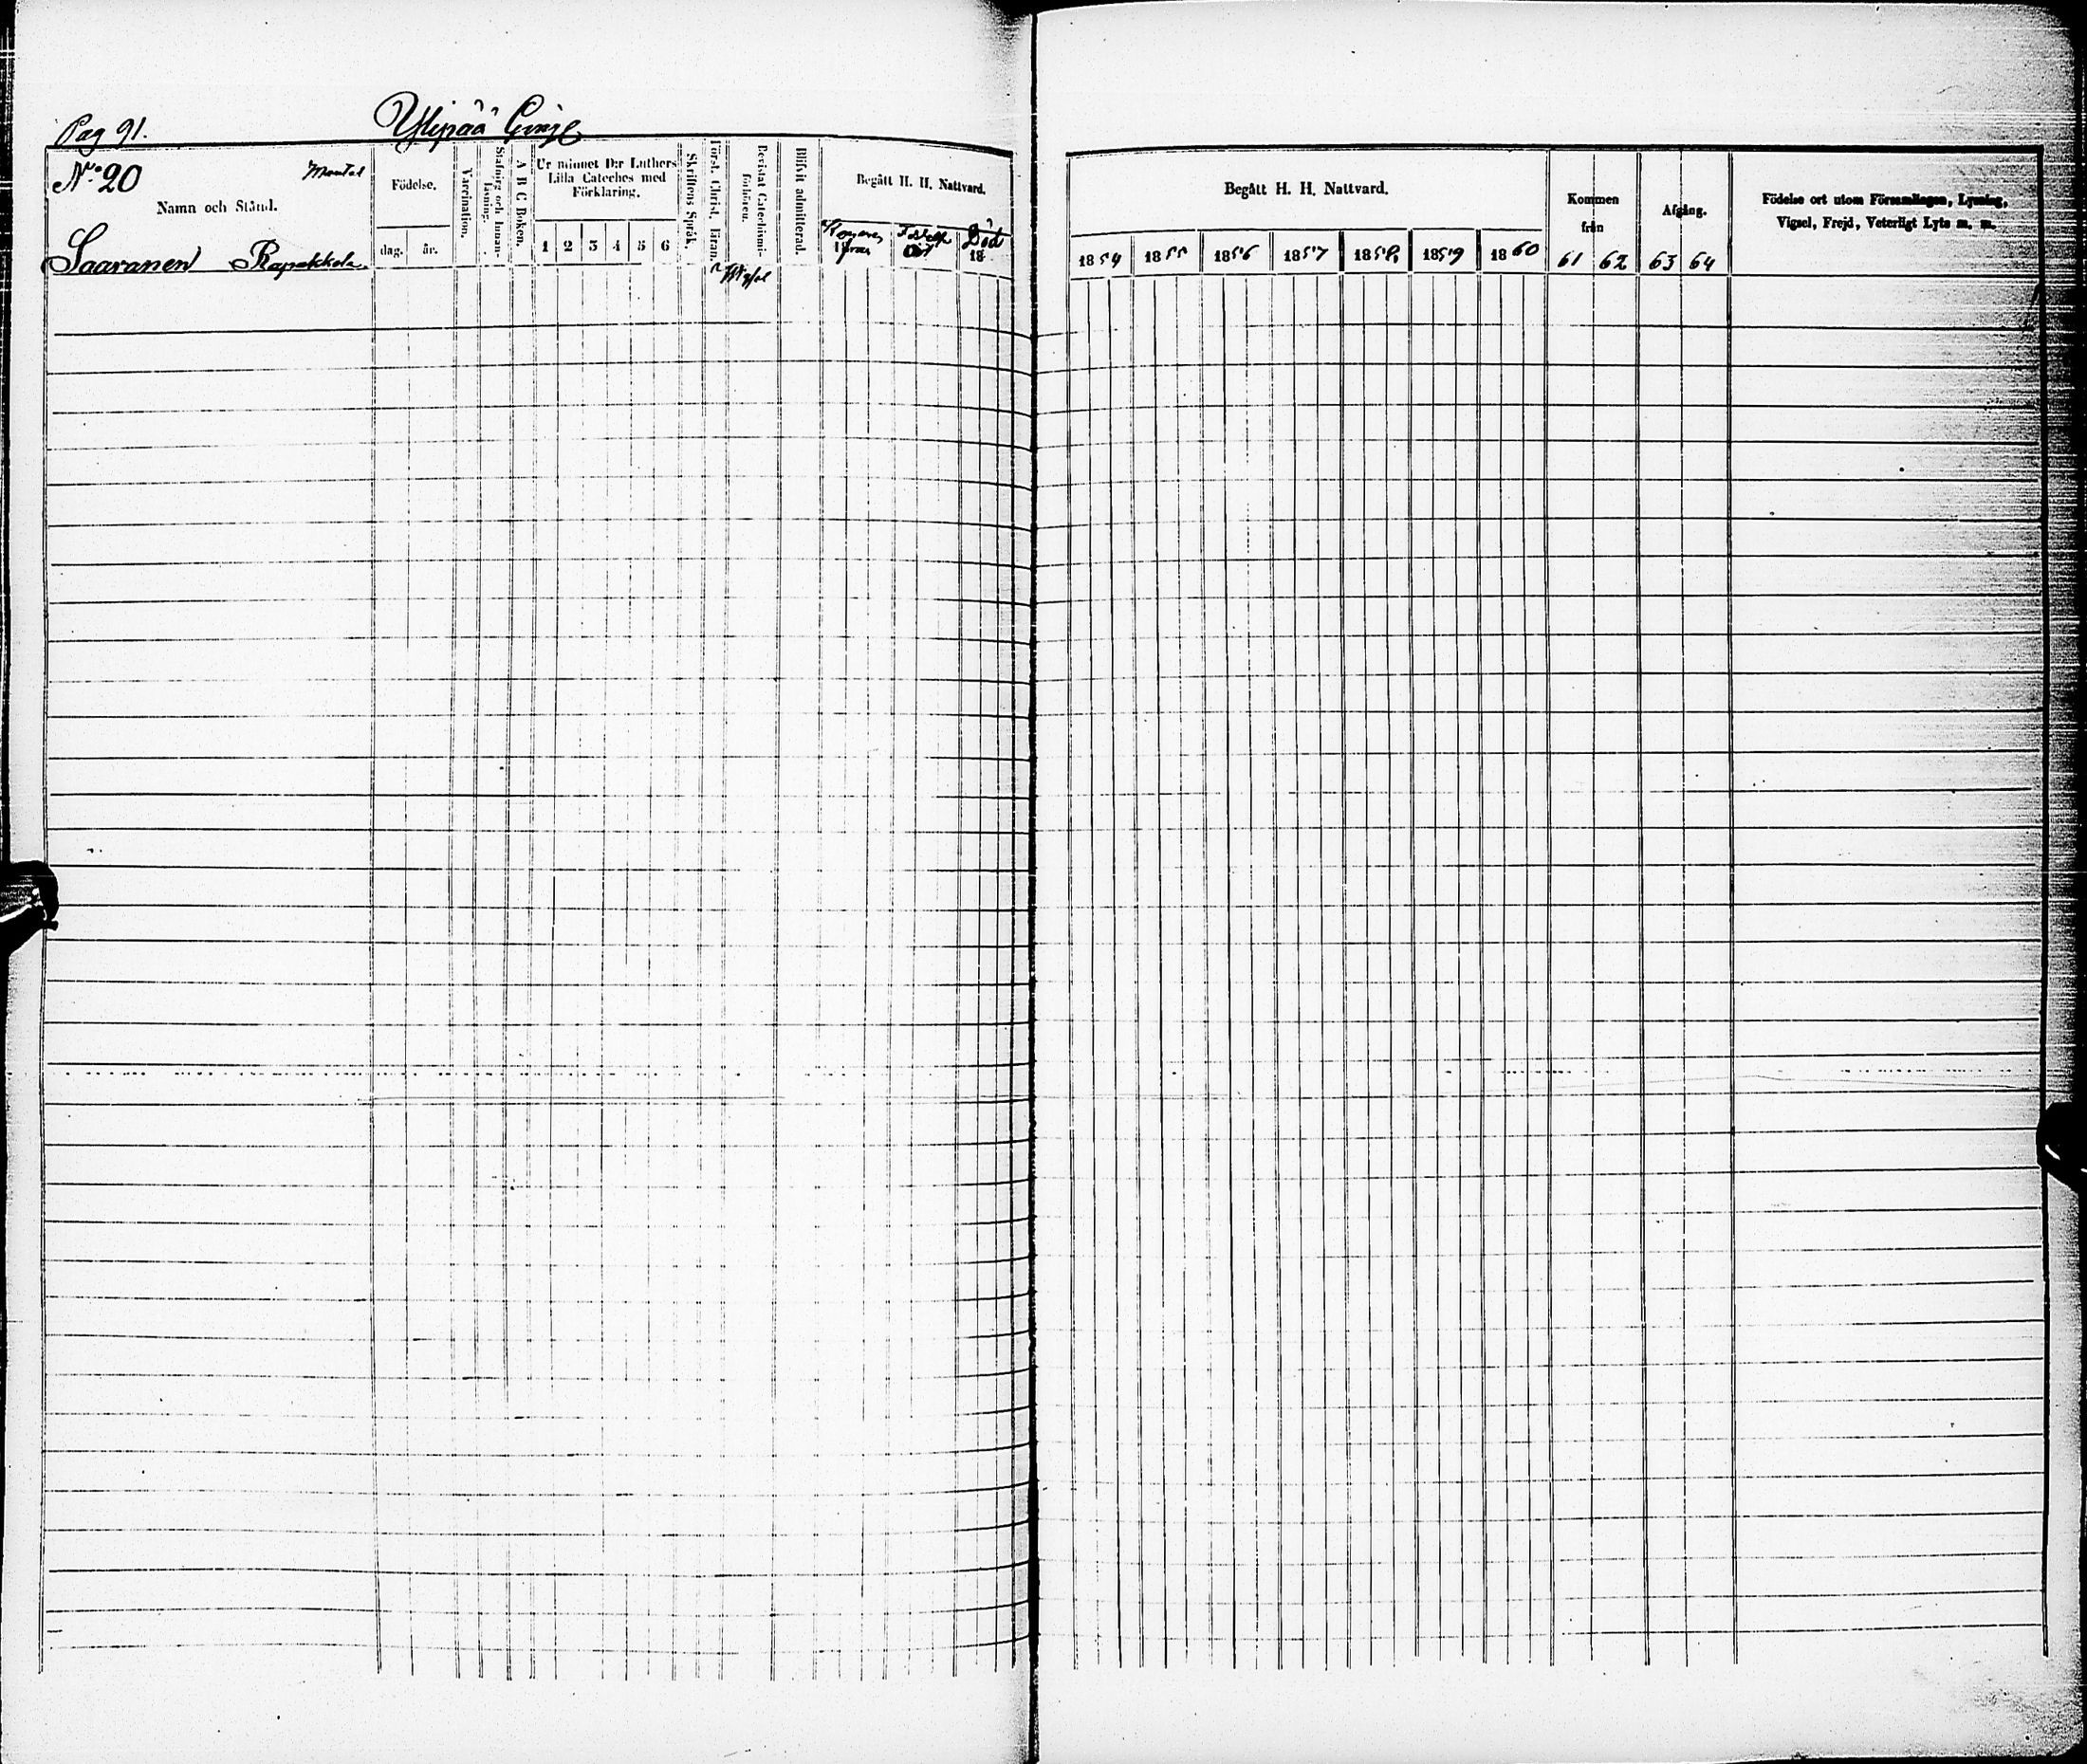 Pag 91.
Ylipää
No 20 Mantal
Namn och Stånd.
Saaranen Rapakkola
Födelse.
dag. år.
Vaccination.
Stafning och Innan-
läsning.
A B C Boken.
Ur minnet D:r Luthers
Lilla Cateches med
Förklaring.
1 2 3 4 5 6
Skriftens Språk.
Först. Christ. Läran.
Bevistat Catechismi-
förhören.
Vigsel
Blifvit admitterad.
Begått H. H. Nattvard.
Död
18
Begått H. H. Nattvard.
1854 1855 1856 1857 1858 1859 1860
Kommen
från
61 62
Afgång.
63 64
Födelse ort utom Församlingen, Lysning,
Vigsel, Frejd, Veterligt Lyte m. m.